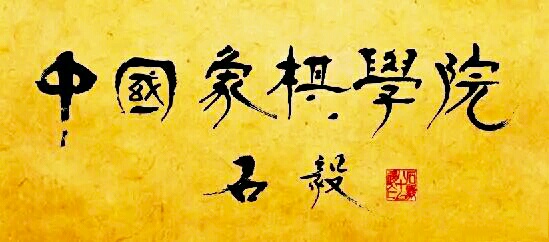 中國象棋學院
石毅